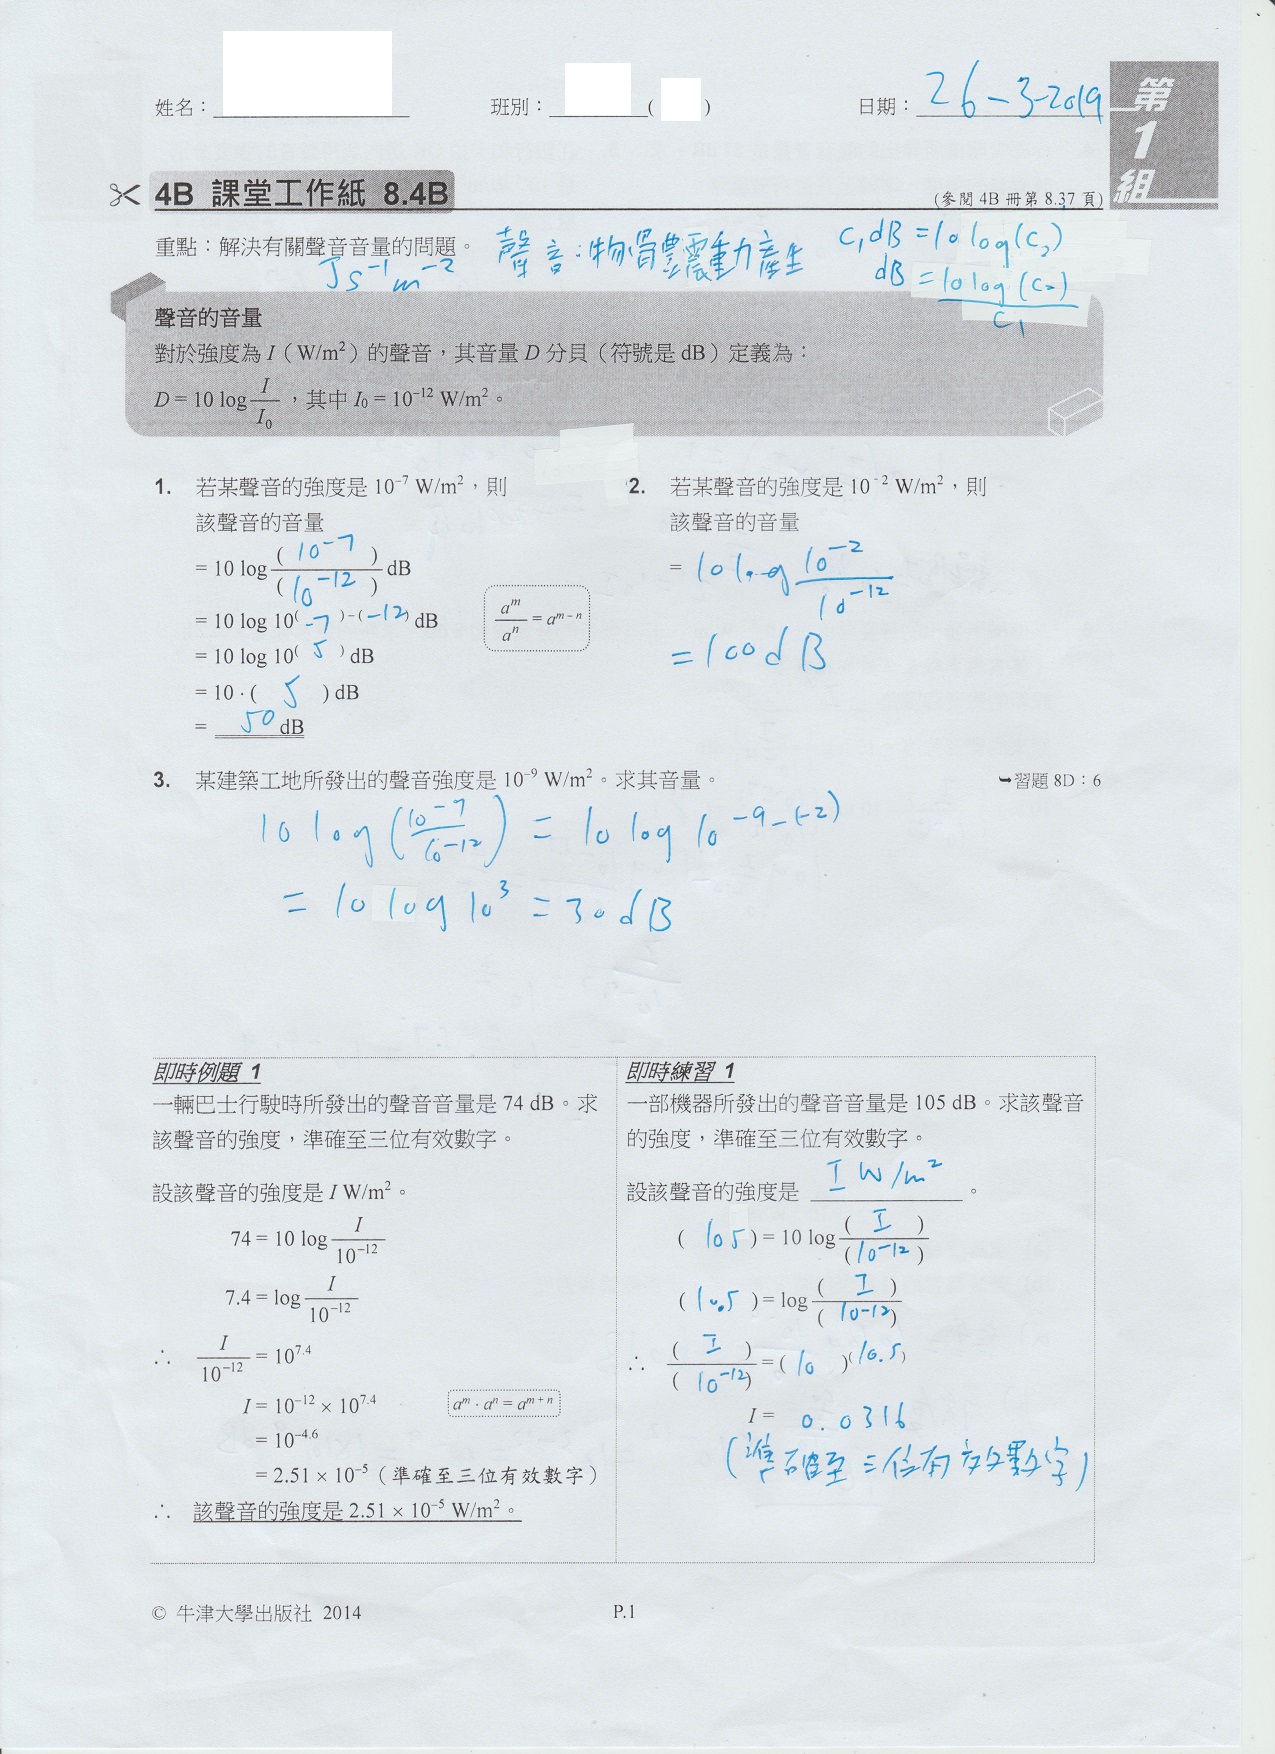 姓名：
班別： ( )
日期：26-3-2019
第1組
4B 課堂工作紙 8.4B
(參閱 4B 冊第 8.37 頁)
重點：解決有關聲音音量的問題。
聲音：物體震動產生
C₁dB = 10 log(C₂)
Js⁻¹m⁻²
dB = 10 log (C₂) / C₁
聲音的音量
對於強度為 I（W/m²）的聲音，其音量 D 分貝（符號是 dB）定義為：
D = 10 log I/I₀，其中 I₀ = 10⁻¹² W/m²。
1. 若某聲音的強度是 10⁻⁷ W/m²，則
該聲音的音量
= 10 log (10⁻⁷)/(10⁻¹²) dB
= 10 log 10^( -7 )-( -12 ) dB
aᵐ/aⁿ = aᵐ⁻ⁿ
= 10 log 10^( 5 ) dB
= 10 · ( 5 ) dB
= 50 dB
2. 若某聲音的強度是 10⁻² W/m²，則
該聲音的音量
= 10 log 10⁻²/10⁻¹²
= 100 dB
3. 某建築工地所發出的聲音強度是 10⁻⁹ W/m²。求其音量。
➥習題 8D：6
10 log (10⁻⁹/10⁻¹²) = 10 log 10^-9-(-2)
= 10 log 10³ = 30 dB
即時例題 1
一輛巴士行駛時所發出的聲音音量是 74 dB。求
該聲音的強度，準確至三位有效數字。
設該聲音的強度是 I W/m²。
74 = 10 log I/10⁻¹²
7.4 = log I/10⁻¹²
∴ I/10⁻¹² = 10^7.4
I = 10⁻¹² × 10^7.4
aᵐ · aⁿ = aᵐ⁺ⁿ
= 10^-4.6
= 2.51 × 10⁻⁵（準確至三位有效數字）
∴ 該聲音的強度是 2.51 × 10⁻⁵ W/m²。
即時練習 1
一部機器所發出的聲音音量是 105 dB。求該聲音
的強度，準確至三位有效數字。
設該聲音的強度是 I W/m² 。
( 105 ) = 10 log ( I )/(10⁻¹²)
( 10.5 ) = log ( I )/( 10⁻¹²)
∴ ( I )/( 10⁻¹²) = ( 10 )^(10.5)
I = 0.0316
(準確至三位有效數字)
© 牛津大學出版社 2014
P.1